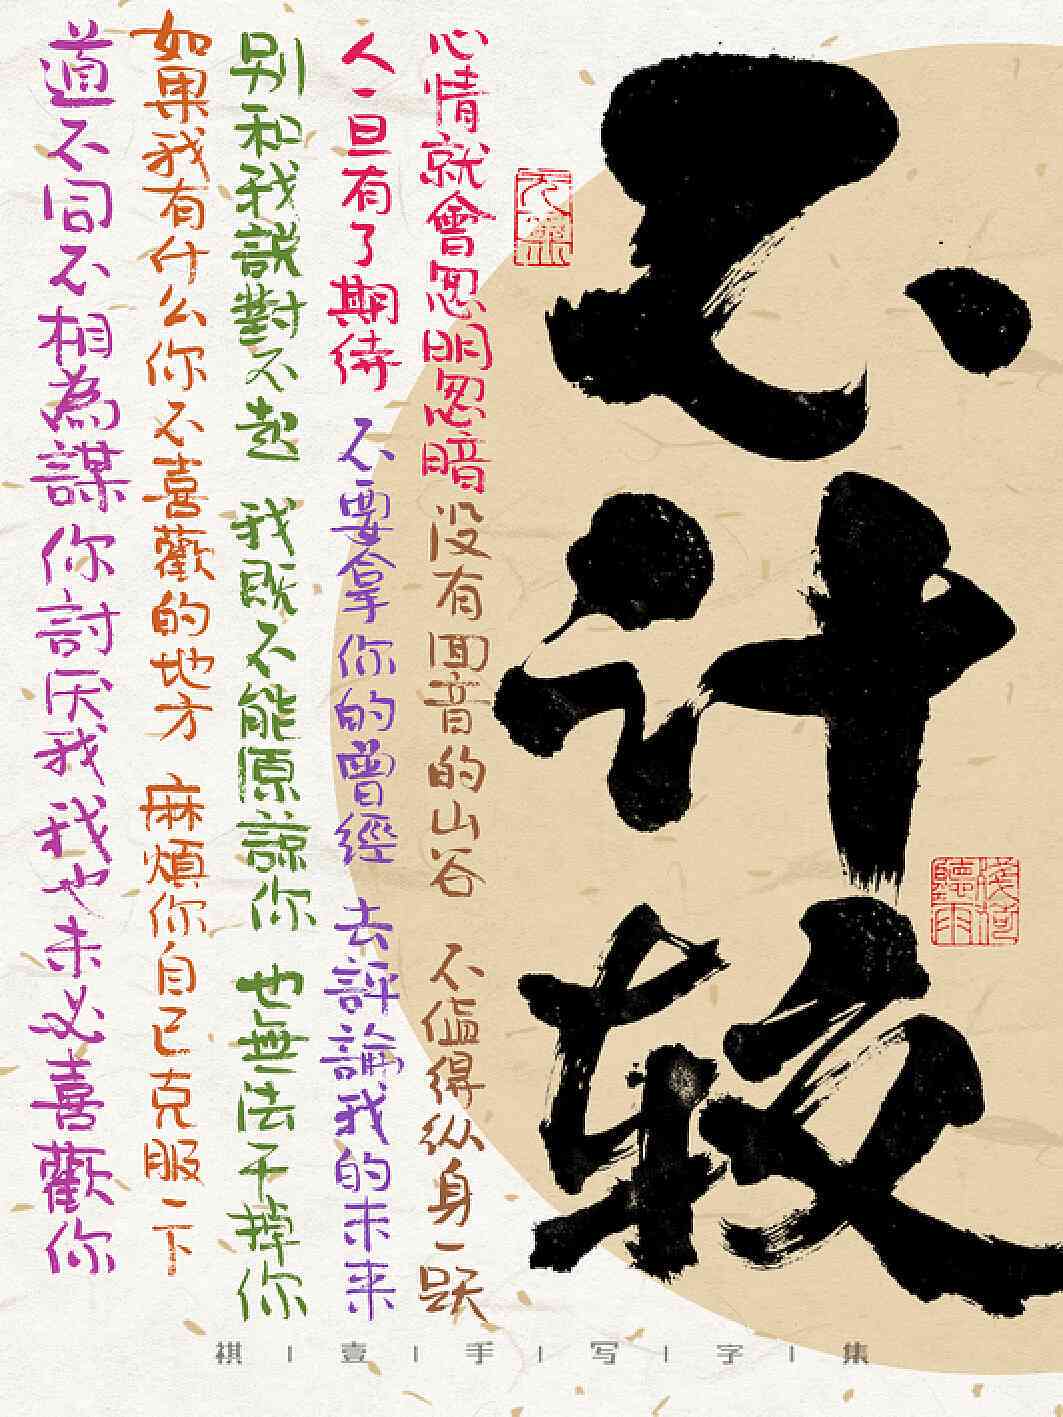 不计较
人一旦有了期待
心情就會忽明忽暗
没有回音的山谷
不值得纵身一跃
不要拿你的曾經
去評論我的未来
别和我説對不起
我既不能原諒你
也無法干掉你
如果我有什么你不喜歡的地方
麻煩你自己克服一下
道不同不相為謀
你討厌我我也未必喜歡你
聽雨
祺|壹|手|写|字|集